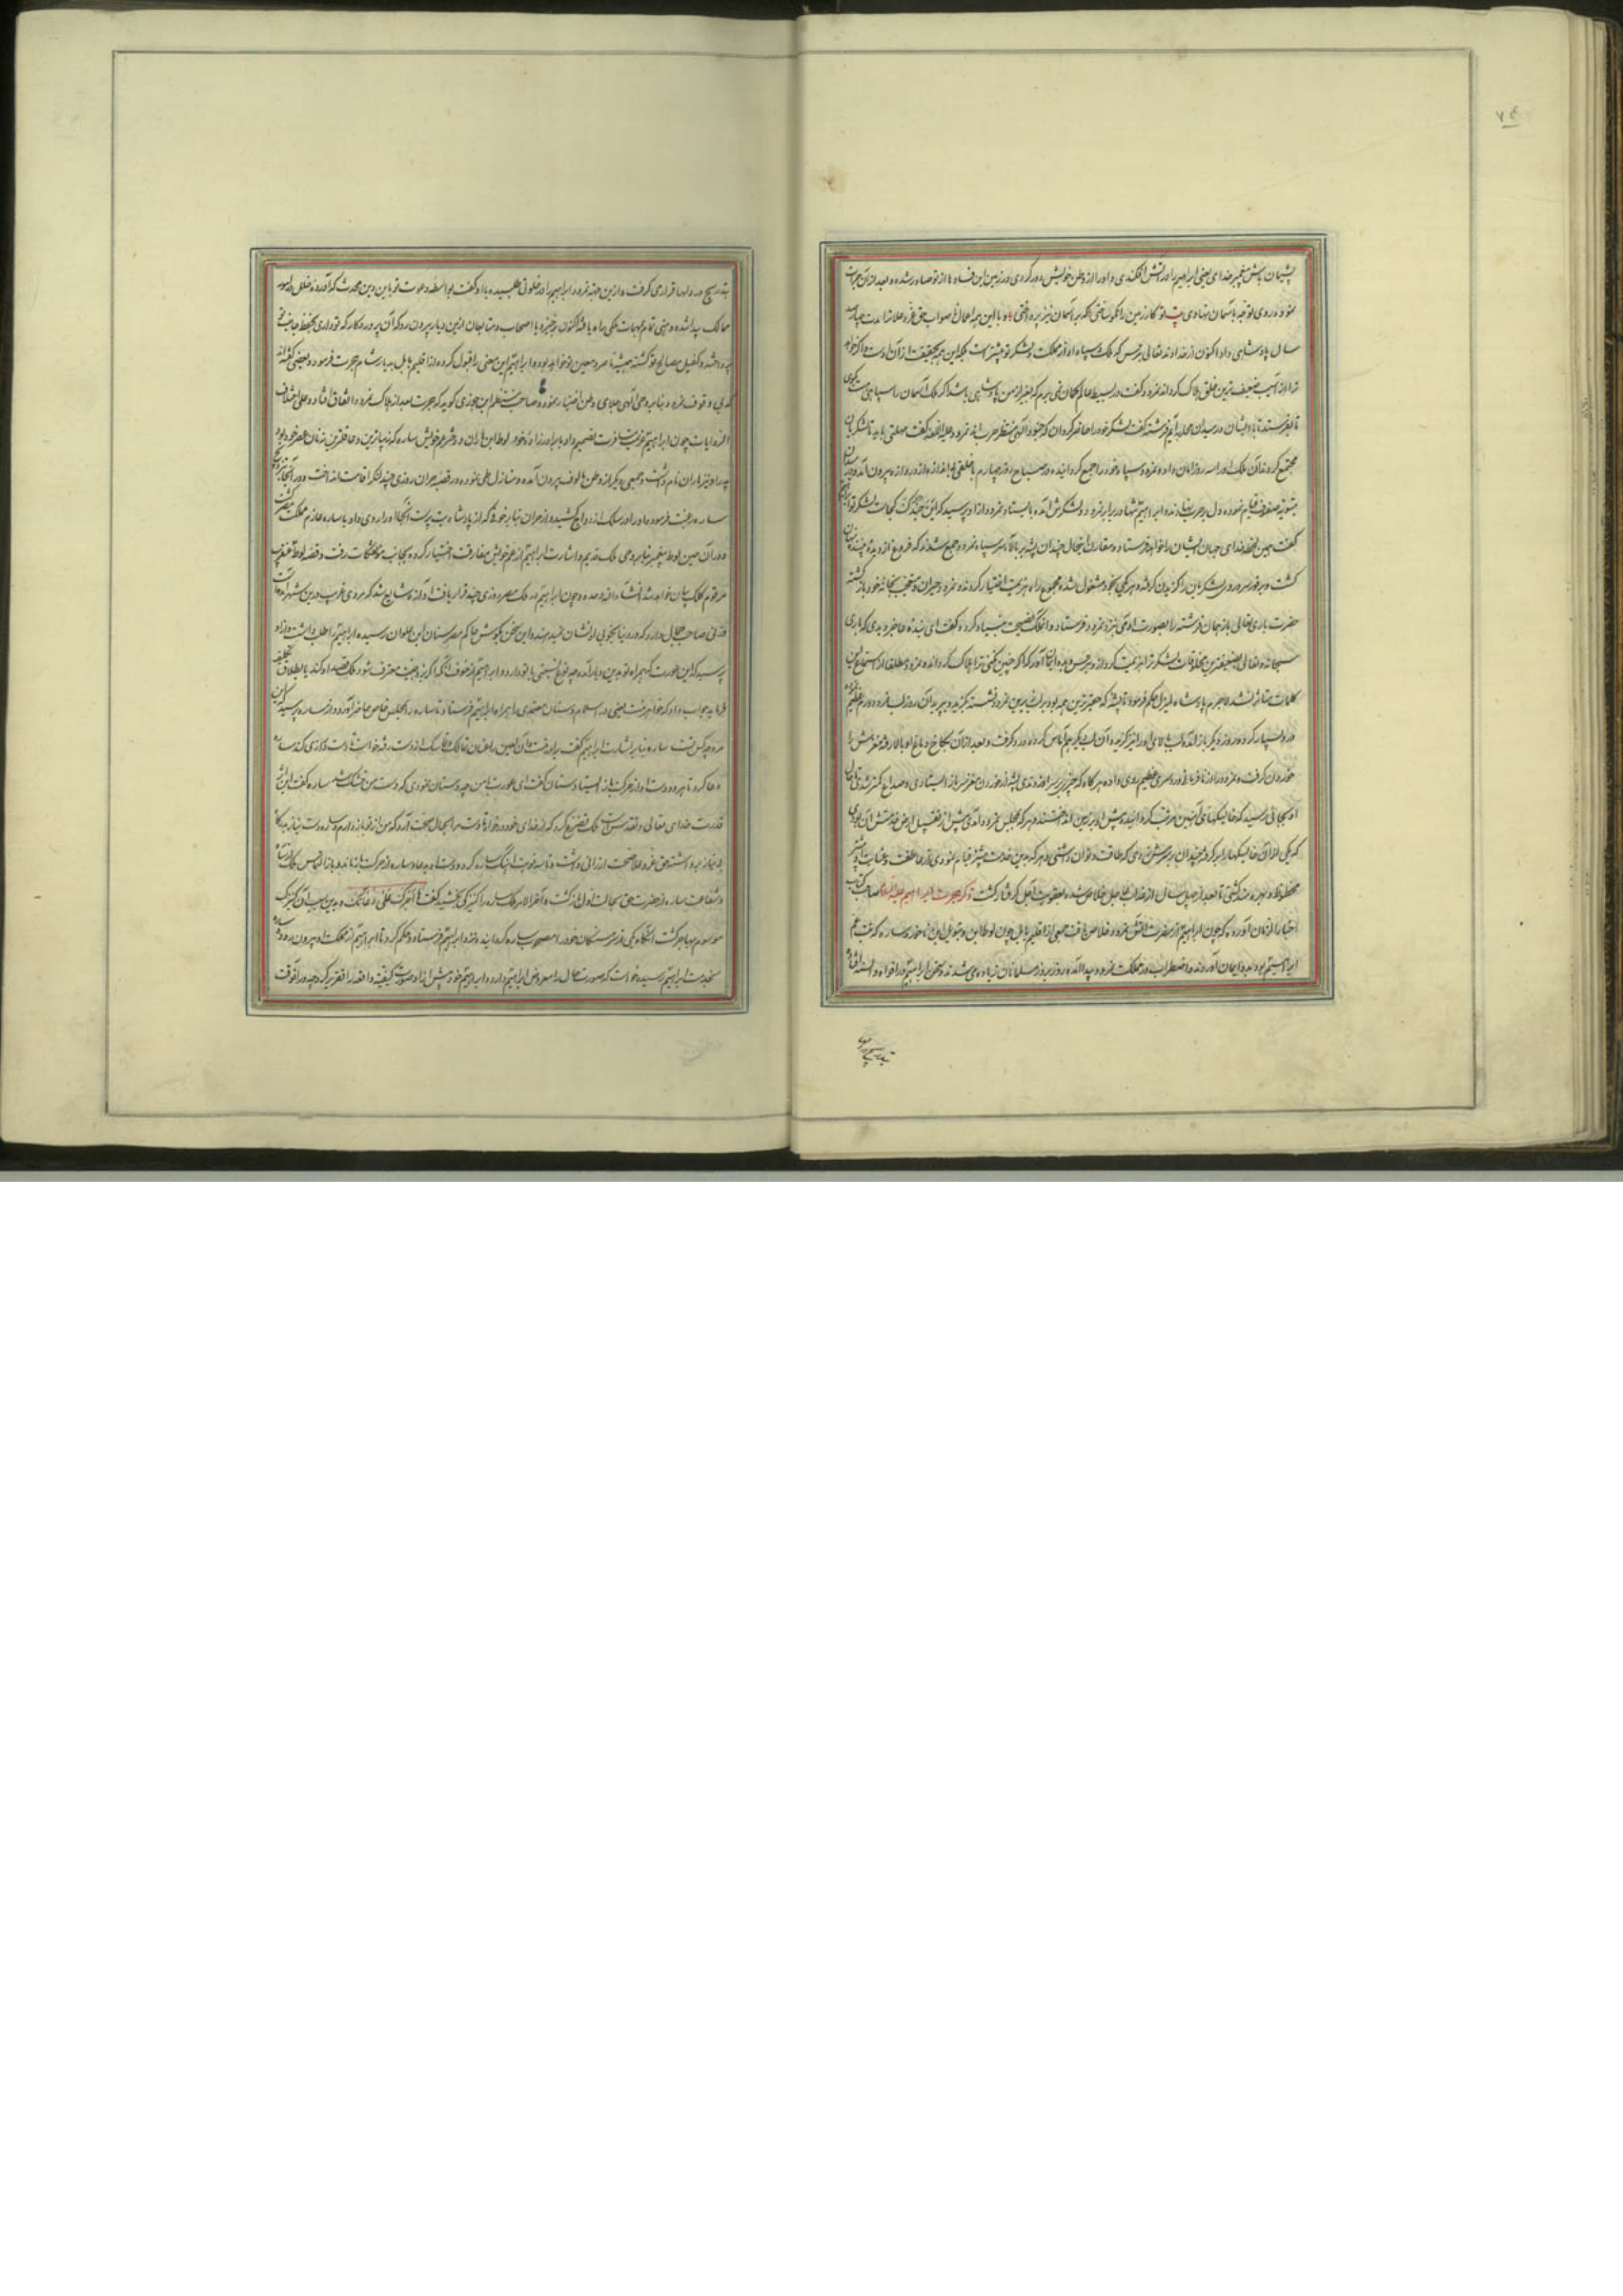 پشیمان باش پیغمبر خدای یعنی ابراهیم را در آتش افکندی و او را از وطن خویش دور کردی و در زمین این فسادها از تو صادر شده و بعد از آن جرات
نموده روی توجه باسمان نهادی کار زمین را نکو ساختی که بر آسمان نیز پرداختی و با این همه اعمال ناصواب حق عز و علا ترا مدت چهارصد
سال پادشاهی داد اکنون از خداوند تعالی بترس که ملک و سپاه او از مملکت و لشکر تو بیشتر است
ترا از ضعیف ترین خلق هلاک کرداند نمرود گفت در بسیط عالم گمان نمی برم که بغیر از من پادشاهی باشد اگر ملک آسمان را سپاهی هست بگوی
تا بفرستد تا با ایشان در میدان محاربه آیم فرشته گفت لشکر خود را حاضر گردان که جنود الهی منتظر حرب اند نمرود گفت مهلتی باید تا لشکریان
مجتمع گردند آن ملک او را سه روز امان داده نمرود سپاه خود را جمع گردانیده در صباح روز چهارم با خلقی بی اندازه از دروازه بیرون آمد
صفوف قیام نموده دل بر حرب نهادند و ابراهیم تنها در برابر نمرود و لشکرش آمده بایستاد نمرود از او پرسید که لشکر تو
گفت همین لحظه خدای جهان ایشان را خواهد فرستاد و مقارن اینحال چندان پشه بر بالای سر سپاه نمرود جمع شدند که فروغ از دیده
گشت و بر فور سر و روی لشکریان را گزیدن گرفته هر یکی بخود مشغول شده مجموع راه هزیمت اختیار کردند و نمرود حیران و متعجب بخانه خود بازگشته
حضرت باری تعالی باز همان فرشته را بصورت آدمی نزد نمرود فرستاد و آن ملک نصیحت بنیاد کرد و گفت ای بنده عاجز دیدی که باری
سبحانه و تعالی بضعیف ترین مخلوقات لشکر ترا هزیمت گردانید ایمان آور که اگر چنین نکنی ترا هلاک گرداند نمرود مطلقا از استماع این
کلمات متاثر نشد لاجرم پادشاه لم یزل حکم فرمود تا پشه که حقیرترین همه بود بر لب زیرین نمرود نشسته بگزید و بپرید آن روز لب نمرود ورم عظیم
درد بسیار کرد و روز دیگر باز آمده لب بالای او را نیز گزید و آن لب نیز هم آماس کرده درد گرفت و بعد از آن بکاخ دماغ او بالا رفته مغزش را
خوردن گرفت و نمرود را از نافرمانی درد سری عظیم روی داده هر گاه که چیزی بر سر او زدندی پشه از خوردن مغز سر باز ایستادی و صداع کمتر شدی تا حال
او بجائی رسید که خایسکهای آهنین مرتب گردانیده پیش او بر زمین انداختند و هر که بمجلس نمرود درآمدی پیش از تقبیل ارض خدمتش آن بودی
که یکی از آن خایسکها را برگرفته چندان بر سرش زدی که طاقت و توان داشتی و هر که بدین خدمت بیشتر قیام نمودی از عاطفت و عنایت بیشتر
محظوظ و بهره مند گشتی تا بعد از چهل سال از عذاب عاجل خلاص شده بعقوبت آجل گرفتار گشت ذکر هجرت ابراهیم علیه السلام صاحب کتاب
اخبار الزمان آورده که چون ابراهیم از مضرت آتش نمرود خلاص یافت جمعی از اقلیم بابل چون لوط و ساره که بنت عم
ابراهیم بود بدو ایمان آوردند و اضطراب در مملکت نمرود پیدا آمده روز بروز مسلمانان زیاده می شدند و سخن ابراهیم در افواه و السنه افتاد
بتدریج در دلها قراری گرفت و از این جهت نمرود ابراهیم را در خلوتی طلبیده با او گفت بواسطه دعوت تو باین دین محدث که آورده خلل در امور
ممالک پیدا شده و وهنی تمام بمهمات ملکی راه یافته اکنون برخیز و با اصحاب و متابعان ازین دیار بیرون رو که آن پروردگار که تو داری بحفظ جانب تو
پرداخته و کفیل مصالح تو گشته همیشه ناصر و معین تو خواهد بود و ابراهیم این معنی را قبول کرده از اقلیم بابل بدیار شام هجرت فرمود و بعضی گفته اند
که بی وقوف نمرود بنابر وحی الهی جلای وطن اختیار نموده و صاحب منتظم ابن جوزی گوید که هجرت بعد از هلاک نمرود اتفاق افتاد و علی اختلاف
الروایات چون ابراهیم عزیمت سفر تصمیم داد با برادرزاده خود لوط ابن هاران و دختر عم خویش ساره که زیباترین و عاقلترین زنان عصر خود بود
پدر او نیز هاران نام داشت و جمعی دیگر از وطن مالوف بیرون آمده و منازل طی نموده در قصبه حران روزی چند لنگر اقامت انداخت و در آنجا
ساره رغبت فرموده او را در سلک ازدواج کشیده و از حران بنابر خوفی که از پادشاه بت پرست آنجا او را روی داد با ساره عازم مملکت مصر گشت
و در آن حین لوط پیغمبر بنابر وحی ملک قدیم و اشارت ابراهیم از عم خویش مفارقت اختیار کرده بجانب موتفکات رفت و قصه لوط عنقریب
مرقوم کلک بیان خواهد شد انشاء الله وحده و چون ابراهیم در ملک مصر روزی چند قرار یافت آوازه شایع شد که مردی غریب درین شهر آمده است
و زنی صاحب جمال دارد که در دنیا بخوبی او نشان نمیدهند و این سخن بگوش حاکم مصر سنان ابن علوان رسیده ابراهیم را طلب داشت و از او
پرسید که این عورت که همراه تو بدین دیار آمده چه نوع نسبتی با تو دارد و ابراهیم از خوف آنکه اگر بزوجیت معترف شود ملک قصد او کند یا بطلاق تکلیف
فرماید جواب داد که خواهر منست یعنی در اسلام و سنان معتمدی را همراه ابراهیم فرستاد تا ساره را بمجلس خاص حاضر آورد و از ساره پرسید که این
مرد چه کس تست ساره بنابر اشارت ابراهیم گفت برادر منست دست درازی کند ساره
دعا کرد تا هر دو دست او از حرکت باز ایستاد سنان گفت ای عورت با من چه دستان نمودی که دست من خشک شد ساره گفت این اثر
قدرت خدای متعالی و تقدس است ملک تضرع کرد که از خدای خود درخواه تا دست مرا بحال صحت آورد که من از تو باز دارم و ساره دست نیاز بدرگاه
بی نیاز برداشته حق عز و علا صحت ارزانی داشت و تا سه نوبت آهنگ ساره کرد و دست او بدعا و ساره از حرکت باز ماند و باز بالتماس ملک
و شفاعت ساره از حضرت حق بحالت اول بازگشت و آخر الامر ملک ساره را کنیزکی بخشید گفت ها اجرک علی دعائک و بدین سبب آن کنیزک
موسوم بهاجر گشت آنگاه یکی از سرهنگان خود را مصحوب ساره گردانید و نزد ابراهیم فرستاد و حکم کرد تا ابراهیم از مملکت او بیرون رود
بخدمت ابراهیم رسیده خواست که صورت حال را معروض ابراهیم دارد و ابراهیم خود پیش از او صورت کیفیت واقعه را تقریر کرد چه در آنوقت